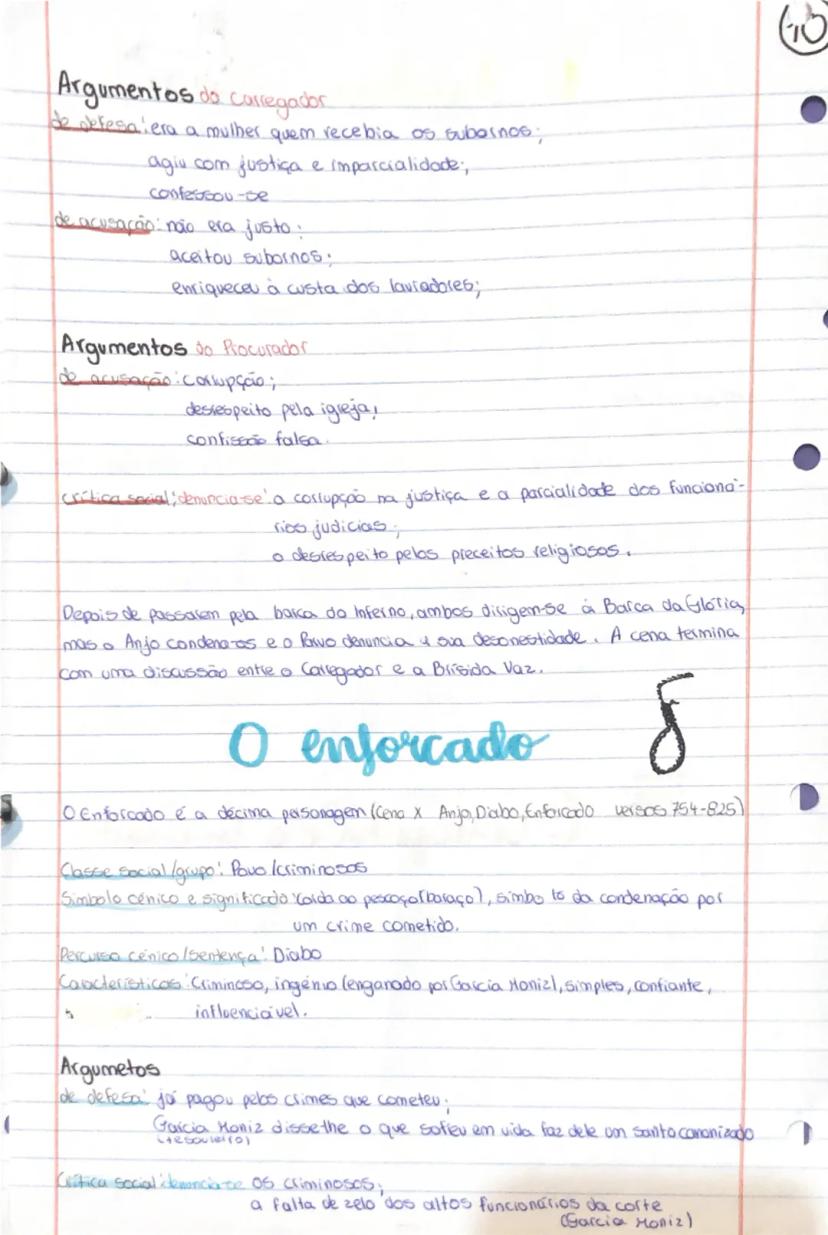 10
Argumentos do Corregedor
de defesa: era a mulher quem recebia os subornos;
agiu com justiça e imparcialidade;
confessou-se
de acusação: não era justo;
aceitou subornos;
enriqueceu à custa dos lavradores;
Argumentos do Procurador
de acusação: corrupção;
desrespeito pela igreja;
confissão falsa.
crítica social: denuncia-se: a corrupção na justiça e a parcialidade dos funcioná-
rios judiciais;
o desrespeito pelos preceitos religiosos.
Depois de passarem pela barca do Inferno, ambos dirigem-se à Barca da Glória,
mas o Anjo condena-os e o Parvo denuncia a sua desonestidade. A cena termina
com uma discussão entre o Corregedor e a Brísida Vaz.
O enforcado
O Enforcado é a décima personagem (Cena X Anjo, Diabo, Enforcado versos 754-825)
Classe social/grupo: Povo/criminosos
Símbolo cénico e significado: Corda ao pescoço (baraço), símbolo da condenação por
um crime cometido.
Percurso cénico/Sentença: Diabo
Características: Criminoso, ingénuo (enganado por Garcia Moniz), simples, confiante,
influenciável.
Argumetos
de defesa: já pagou pelos crimes que cometeu;
Garcia Moniz disse-lhe o que sofreu em vida faz dele um santo canonizado
(tesoureiro)
Crítica social: denuncia-se os criminosos;
a falta de zelo dos altos funcionários da corte
(Garcia Moniz)